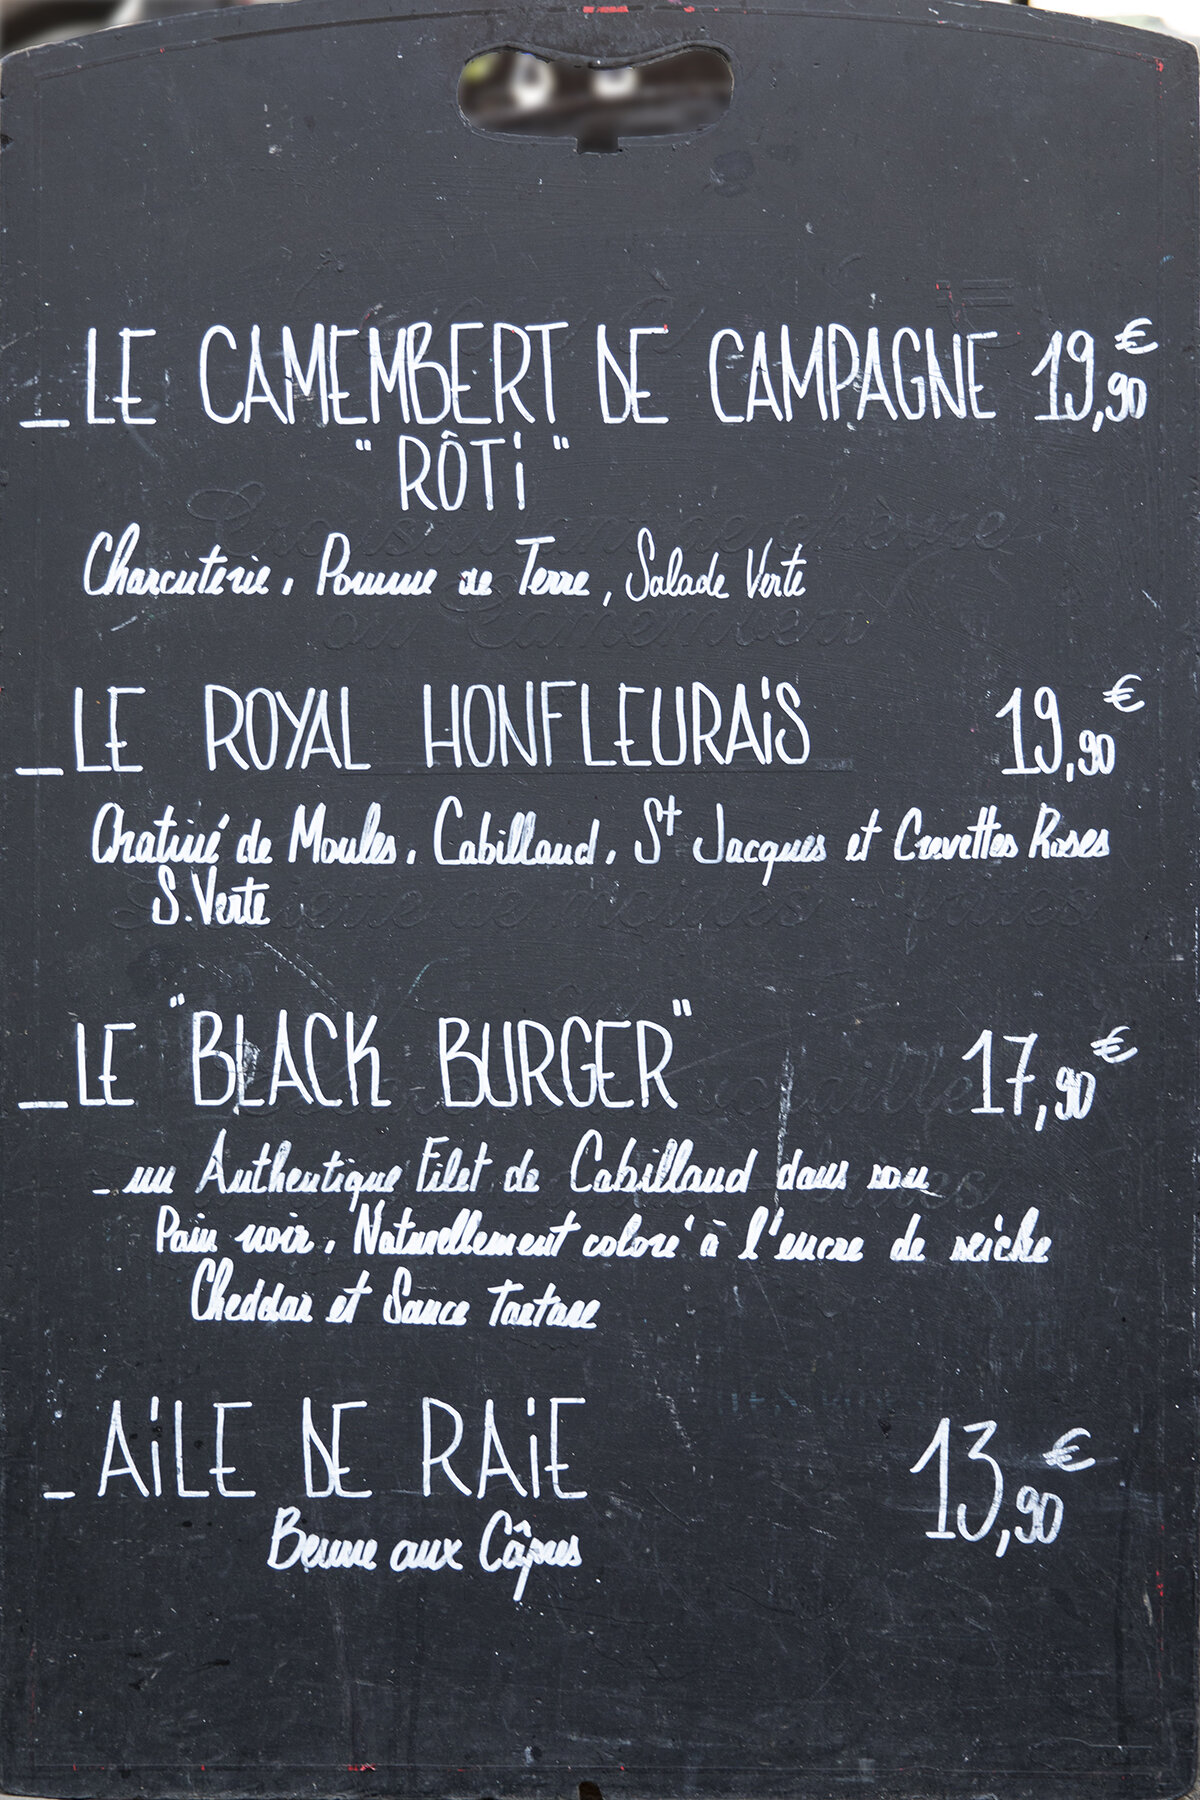 _ LE CAMEMBERT DE CAMPAGNE 19,90€
"RÔTi"
Charcuterie, Pomme de Terre, Salade Verte
_ LE ROYAL HONFLEURAiS 19,90€
Gratiné de Moules, Cabillaud, St Jacques et Crevettes Roses
S. Verte
_ LE "BLACK BURGER" 17,90€
_ un Authentique Filet de Cabillaud dans son
Pain noir, Naturellement coloré à l'encre de seiche
Cheddar et Sauce tartare
_ AiLE DE RAiE 13,90€
Beurre aux Câpres